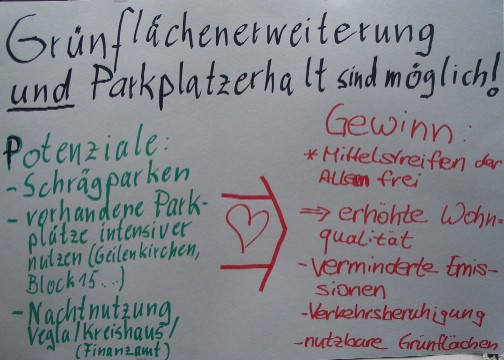 Grünflächenerweiterung
und Parkplatzerhalt sind möglich!
Potenziale:
- Schrägparken
- vorhandene Park-
plätze intensiver
nutzen (Geilenkirchen,
Block 15...)
- Nachtnutzung
Vegla/Kreishaus/
(Finanzamt)
Gewinn:
* Mittelstreifen der
Alleen frei
⇒ erhöhte Wohn-
qualität
- verminderte Emis-
sionen
- Verkehrsberuhigung
- nutzbare Grünflächen